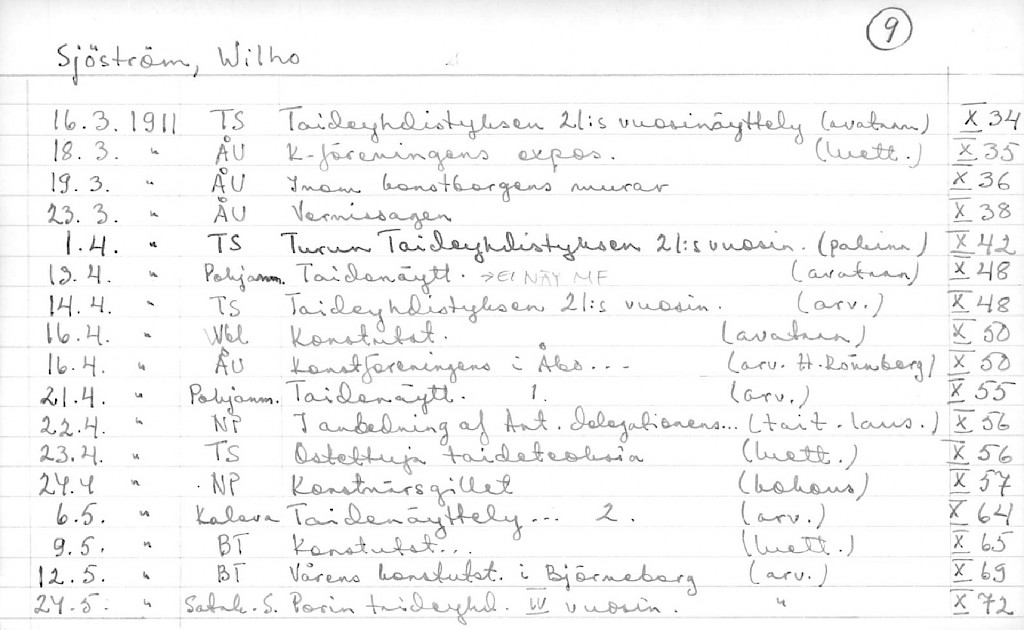 9
Sjöström, Wilho
16.3. 1911 TS Taideyhdistyksen 21:s vuosinäyttely (avataan) X 34
18.3. " ÅU K-föreningens expos. (luett.) X 35
19.3. " ÅU Inom konstborgens murar X 36
23.3. " ÅU Vernissagen X 38
1.4. " TS Turun Taideyhdistyksen 21:s vuosin. (palkinn) X 42
13.4. " Pohjanm. Taidenäytt. → EI NÄY MF (avataan) X 48
14.4. " TS Taideyhdistyksen 21:s vuosin. (arv.) X 48
16.4. " Wbl. Konstutst. (avataan) X 50
16.4. " ÅU Konstföreningens i Åbo... (arv. H. Rönnberg) X 50
21.4. " Pohjanm. Taidenäytt. 1. (arv.) X 55
22.4. " NP I anledning af Ant. delegationens... (tait. laus.) X 56
23.4. " TS Ostettuja taideteoksia (luett.) X 56
24.4 " NP Konstnärsgillet (kokous) X 57
6.5. " Kaleva Taidenäyttely... 2. (arv.) X 64
9.5. " BT Konstutst... (luett.) X 65
12.5. " BT Vårens konstutst. i Björneborg (arv.) X 69
24.5. " Satak. S. Porin taideyhd. IV vuosin. " X 72